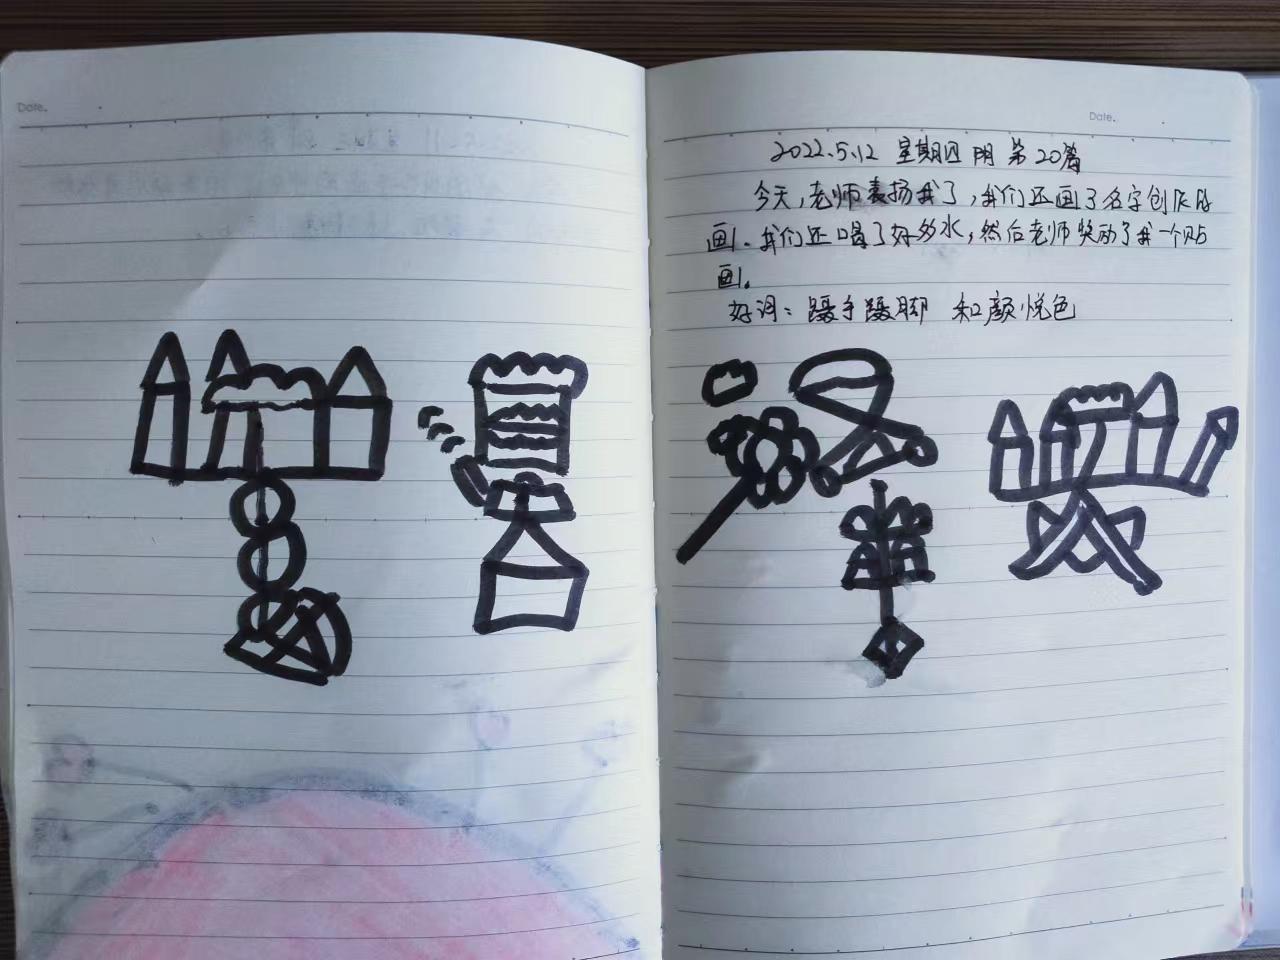 Date.
Date.
2022.5.12 星期四 阴 第20篇
今天，老师表扬我了，我们还画了名字创作的
画。我们还喝了好多水，然后老师奖励了我一个贴
画。
好词：蹑手蹑脚 和颜悦色